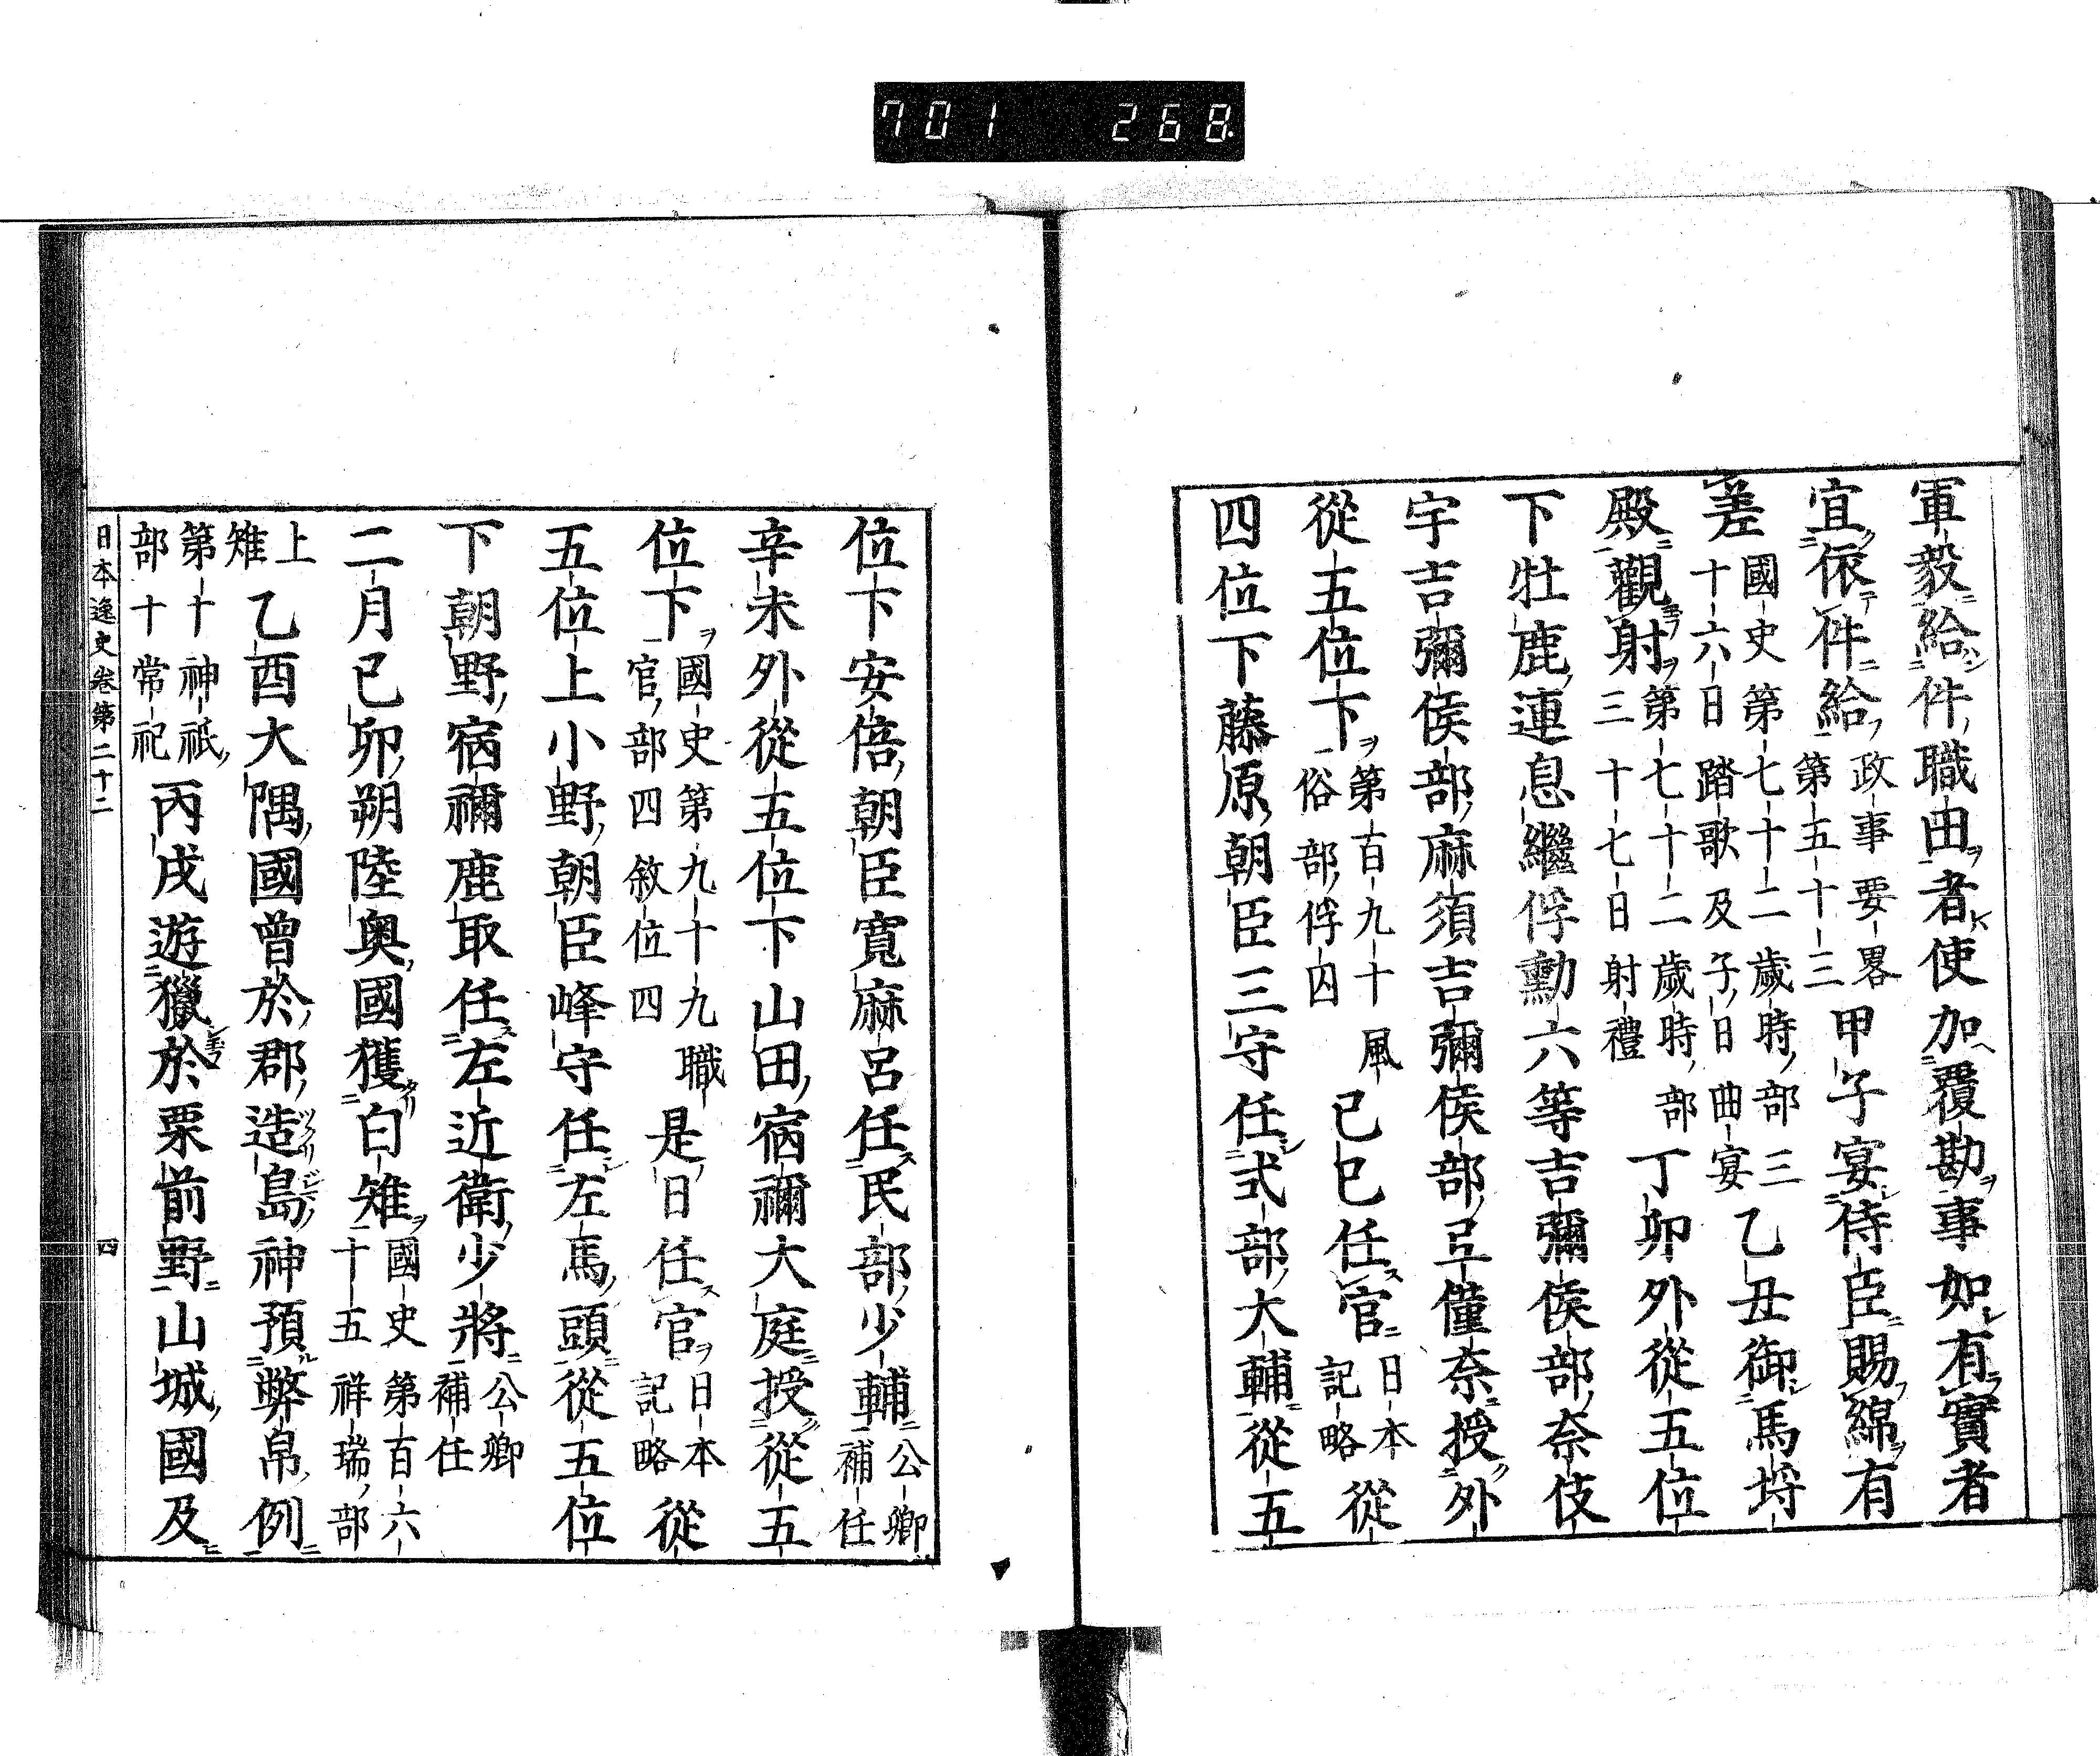 701 268
軍毅給件職田者使加覆勘事如有實者
宜依件給政事要畧第五十三甲子宴侍臣賜綿有
差國史第七十二歳時部三十六日踏歌及子日曲宴乙丑御馬埒
殿觀射第七十二歳時部三十七日射禮丁卯外從五位
下牡鹿連息繼俘勳六等吉彌侯部奈伎
宇吉彌侯部麻須吉彌侯部弖僮奈授外
從五位下第百九十風俗部俘囚己巳任官日本記略從
四位下藤原朝臣三守任式部大輔從五
位下安倍朝臣寬麻呂任民部少輔公卿補任
辛未外從五位下山田宿禰大庭授從五
位下國史第九十九職官部四敘位四是日任官日本記略從
五位上小野朝臣峰守任左馬頭從五位
下朝野宿禰鹿取任左近衛少將公卿補任
二月己卯朔陸奥國獲白雉國史第百六十五祥瑞部
上雉乙酉大隅國曾於郡造島神預弊帛例
第十神祇部十常祀丙戌遊獵於栗前野山城國及
日本逸史卷第二十二 四